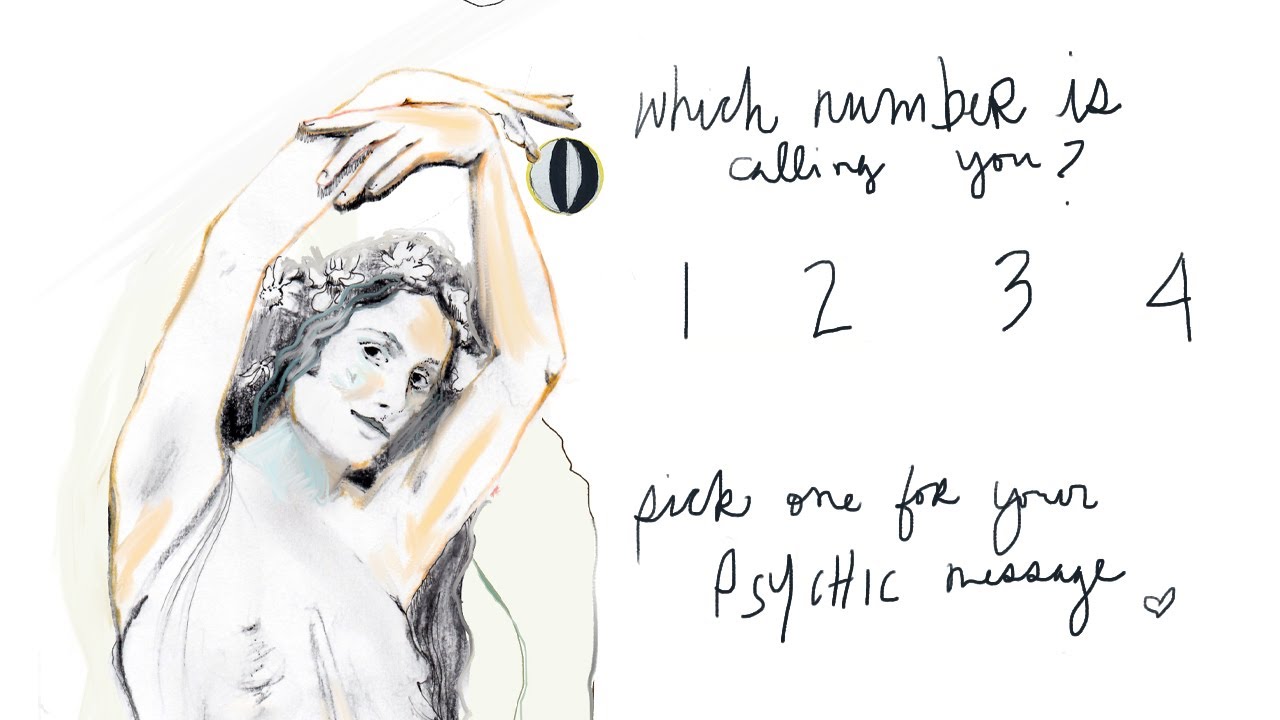 which number is
calling you?
1 2 3 4
pick one for your
PSYCHIC message